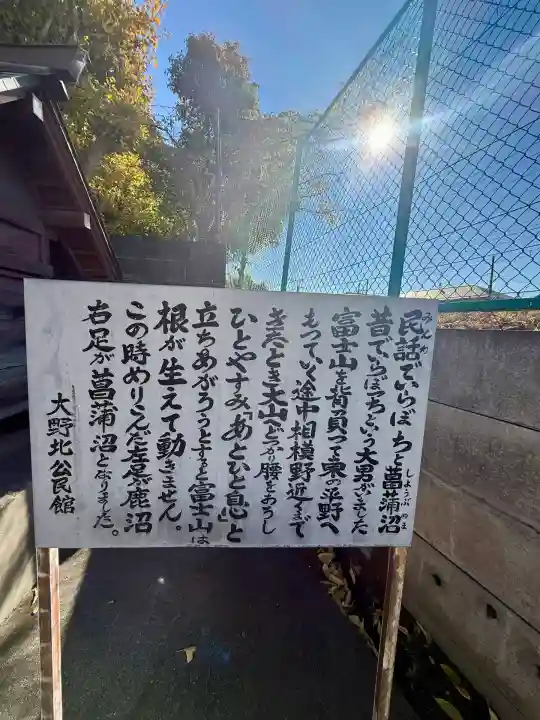 民話でいらぼっちと菖蒲沼
みんわ
しょうぶぬま
昔でいらぼっちという大男がいました
富士山を背負って東の平野へ
もっていく途中相模野近くまで
きたとき大山へどっかり腰をおろし
ひとやすみ「あとひと息」と
立ちあがろうとすると富士山は
根が生えて動きません。
この時めりこんだ左足が鹿沼
右足が菖蒲沼となりました。
大野北公民館